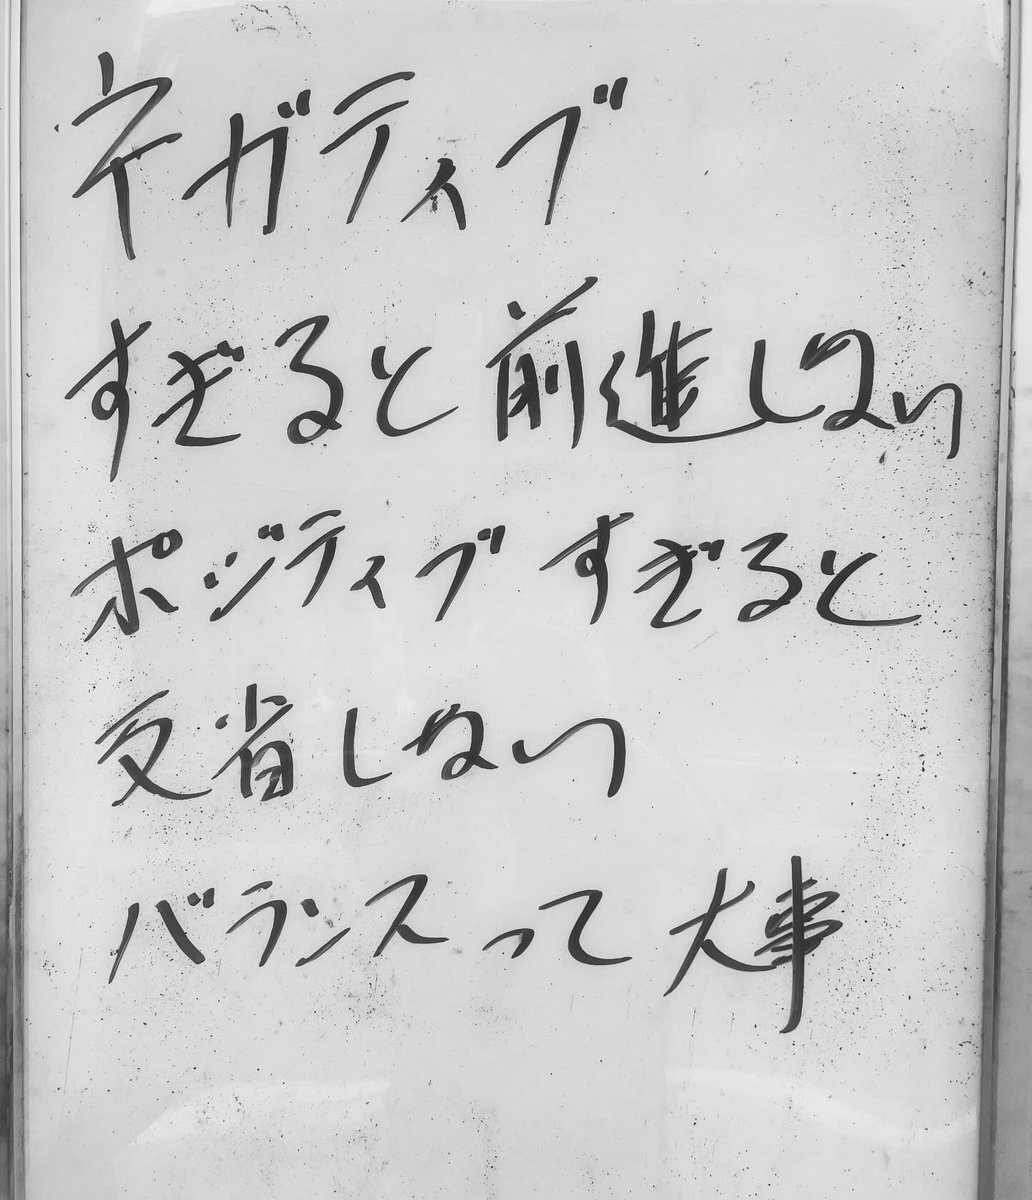 ネガティブ
すぎると前進しない
ポジティブすぎると
反省しない
バランスって大事